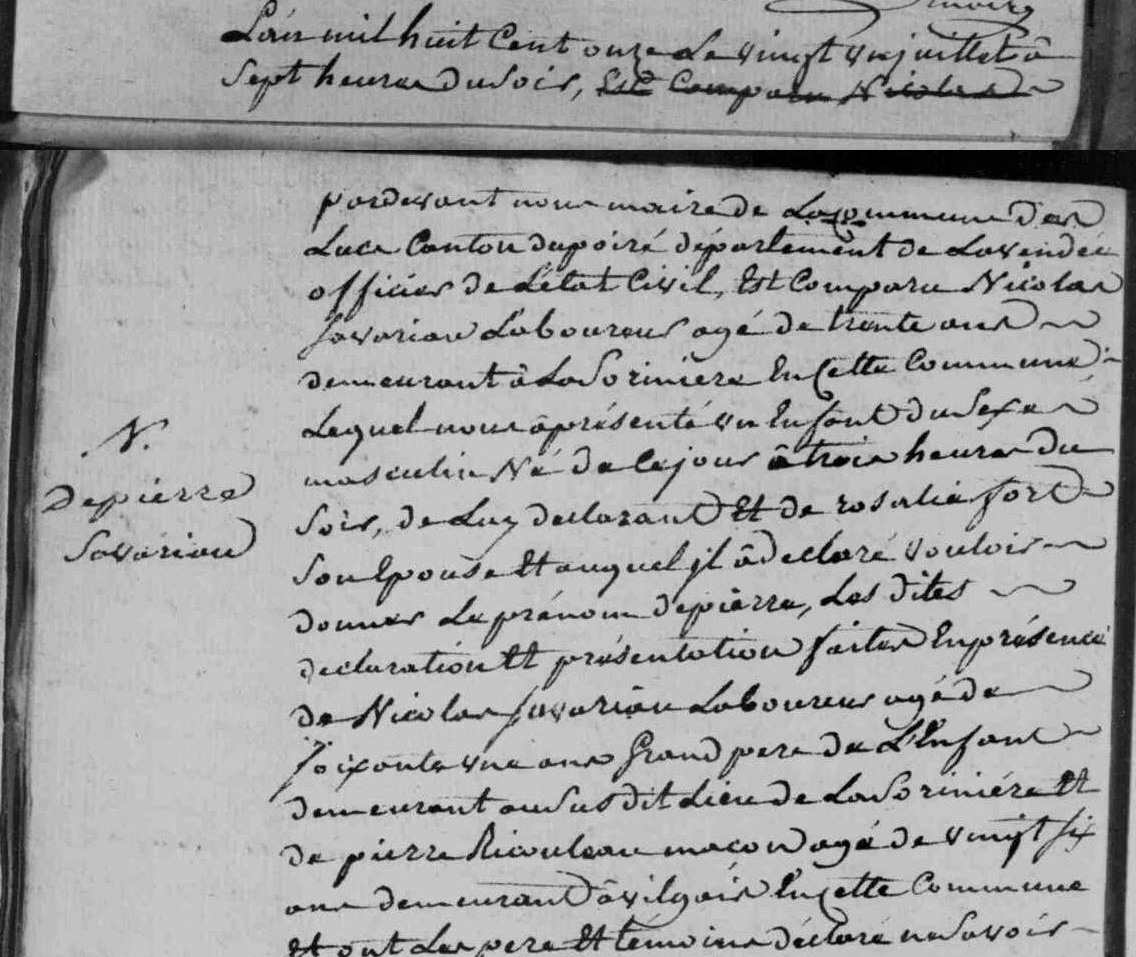 L'an mil huit Cent onze Le vingt un juillet à
Sept heures du Soir, Est Comparu Nicolas
pardevant nous maire de La commune des
Lucs Canton du poiré département de Lavendée
officier de L'état Civil, Est Comparu Nicolas
Savariau Laboureur agé de trente ans
demeurant à La Soriniere En Cette Commune
Lequel nous à présenté un Enfant du Sexe
masculin Né de Ce jour à trois heures du
Soir, de Luy declarant Et de rosalie fort
Son Epouse Et auquel jl à declaré vouloir
donner Le prénom de pierre, Les dites
declaration Et présentation faites En présence
de Nicolas Savariau Laboureur agé de
Soixante une ans Grand pere de L'Enfant
demeurant au Susdit Lieu de La Soriniére Et
de pierre Ricouleau macon agé de vingt Six
ans demeurant à vilgois En Cette Commune
Et ont Les pere Et témoins déclaré ne Savoir
N.
de pierre
Savariau